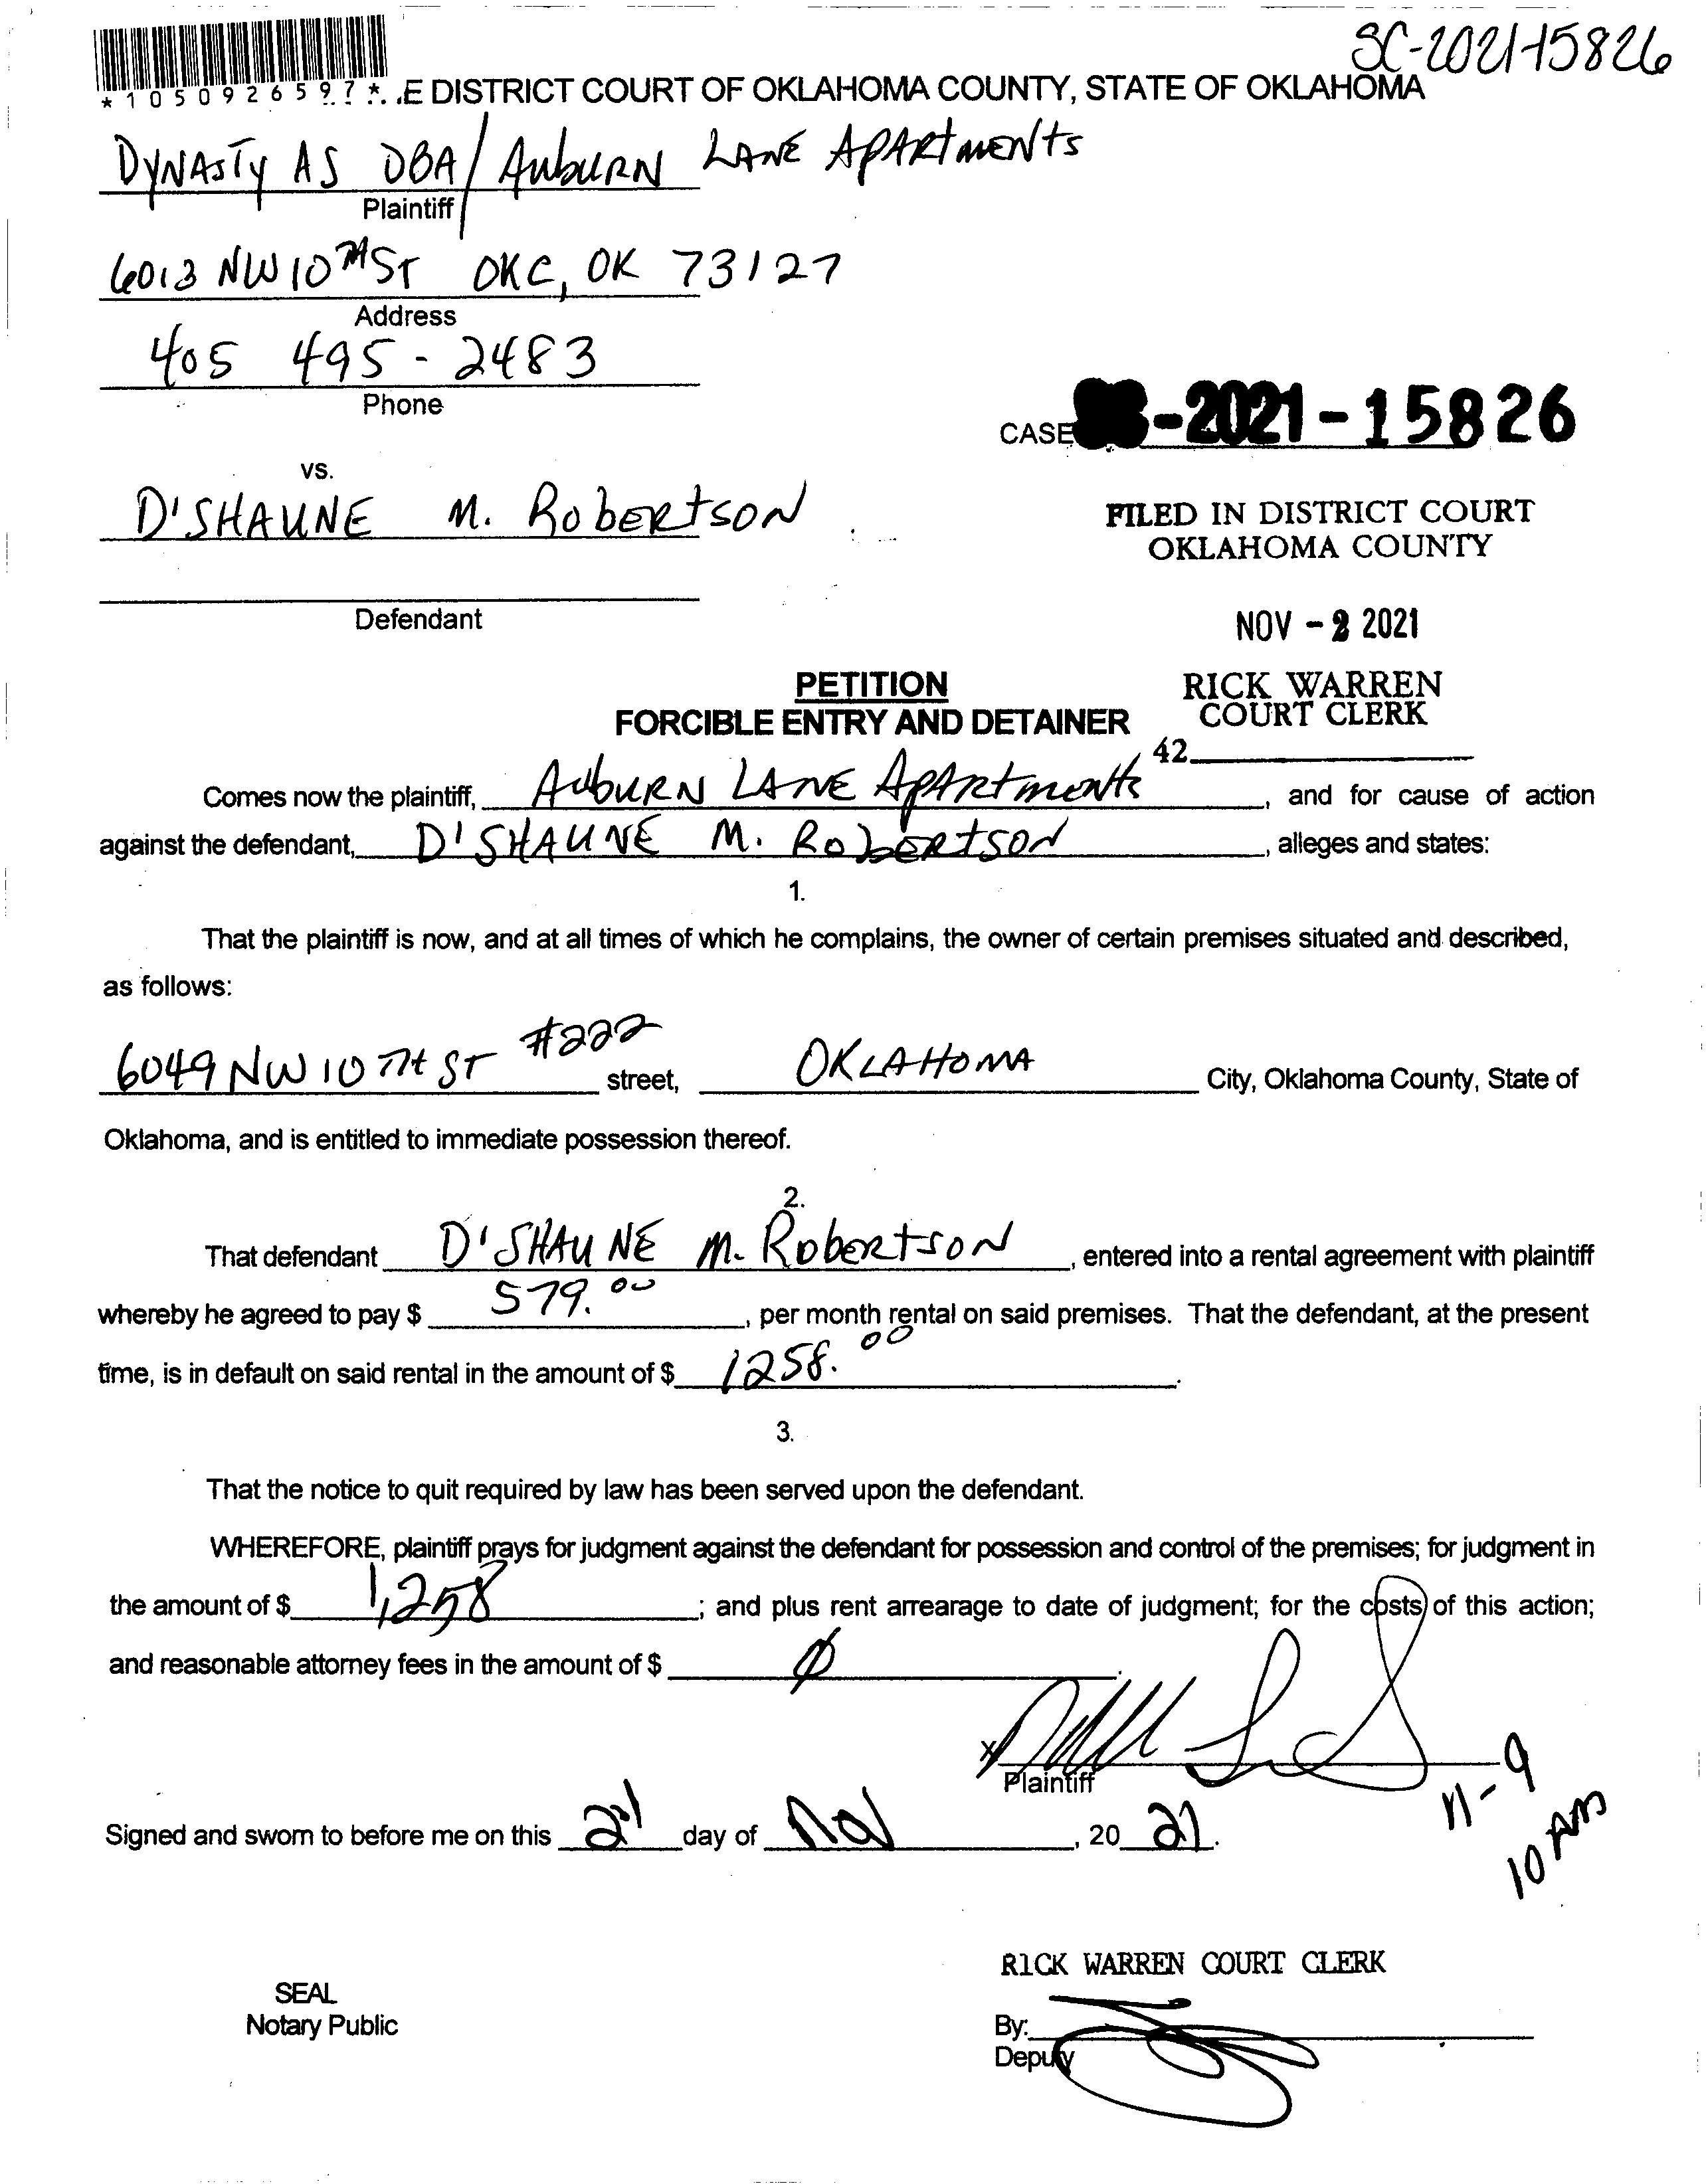 SC-2021-15826
*1050926597*
E DISTRICT COURT OF OKLAHOMA COUNTY, STATE OF OKLAHOMA
DYNASTY AS DBA/ AUBURN LANE APARTMENTS
Plaintiff
6013 NW 10TH ST OKC, OK 73127
Address
405 495-2483
Phone
CASE -2021-15826
vs.
D'SHAUNE M. ROBERTSON
FILED IN DISTRICT COURT
OKLAHOMA COUNTY
Defendant
NOV - 2 2021
PETITION
RICK WARREN
FORCIBLE ENTRY AND DETAINER
COURT CLERK
42
Comes now the plaintiff, AUBURN LANE APARTMENTS, and for cause of action
against the defendant, D'SHAUNE M. ROBERTSON, alleges and states:
1.
That the plaintiff is now, and at all times of which he complains, the owner of certain premises situated and described,
as follows:
6049 NW 10TH ST #222 street, OKLAHOMA City, Oklahoma County, State of
Oklahoma, and is entitled to immediate possession thereof.
2.
That defendant D'SHAUNE M. ROBERTSON, entered into a rental agreement with plaintiff
whereby he agreed to pay $ 579.00, per month rental on said premises. That the defendant, at the present
time, is in default on said rental in the amount of $ 1258.00.
3.
That the notice to quit required by law has been served upon the defendant.
WHEREFORE, plaintiff prays for judgment against the defendant for possession and control of the premises; for judgment in
the amount of $ 1,258; and plus rent arrearage to date of judgment; for the costs of this action;
and reasonable attorney fees in the amount of $ 0.
X
Plaintiff
11-9
10 AM
Signed and sworn to before me on this 2nd day of Nov, 20 21.
RICK WARREN COURT CLERK
SEAL
Notary Public
By:
Deputy